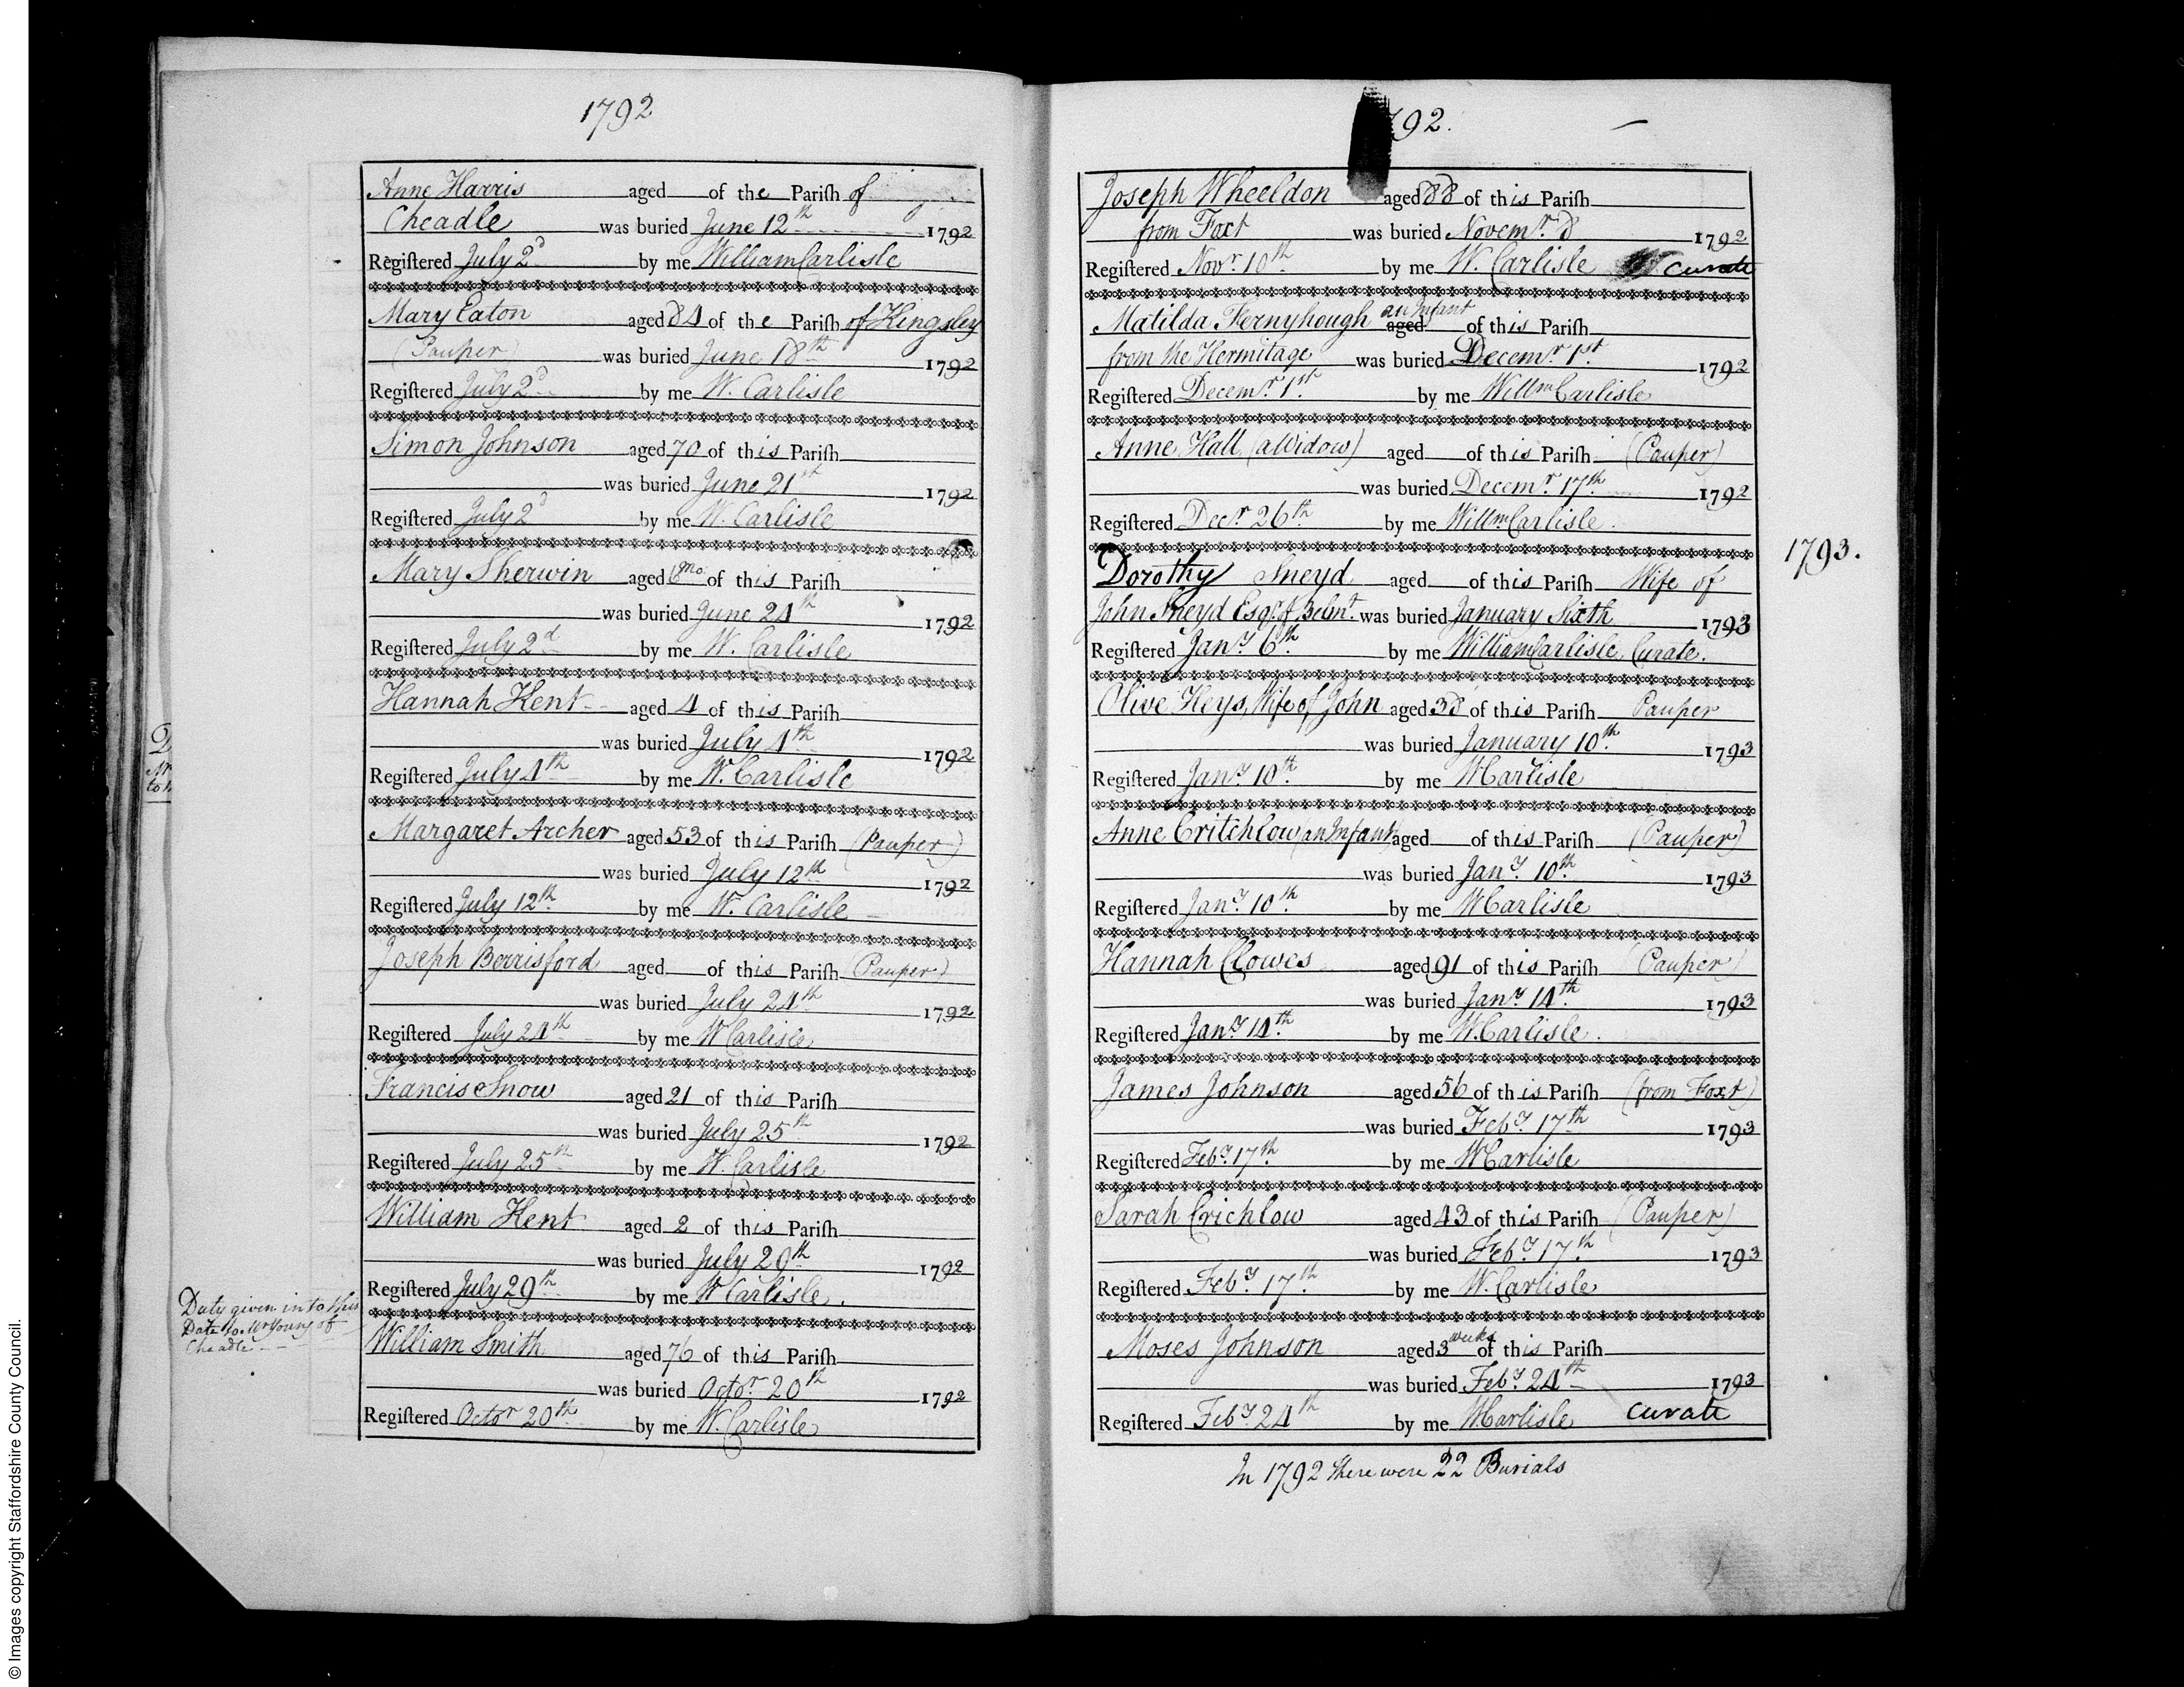 1792
Anne Harris aged of the Parish of
Cheadle was buried June 12th 1792
Registered July 2d by me William Carlisle
Mary Eaton aged 84 of the Parish of Kingsley
(Pauper) was buried June 18th 1792
Registered July 2d by me W. Carlisle
Simon Johnson aged 70 of this Parish
was buried June 21st 1792
Registered July 2d by me W. Carlisle
Mary Sherwin aged 8 mo. of this Parish
was buried June 24th 1792
Registered July 2d by me W. Carlisle
Hannah Kent aged 4 of this Parish
was buried July 4th 1792
Registered July 4th by me W. Carlisle
Margaret Archer aged 53 of this Parish (Pauper)
was buried July 12th 1792
Registered July 12th by me W. Carlisle
Joseph Berrisford aged of this Parish (Pauper)
was buried July 24th 1792
Registered July 24th by me W Carlisle
Francis Snow aged 21 of this Parish
was buried July 25th 1792
Registered July 25th by me W. Carlisle
William Kent aged 2 of this Parish
was buried July 29th 1792
Registered July 29th by me W Carlisle.
Duty given in to this
Date to Mr Young of
Cheadle
William Smith aged 76 of this Parish
was buried Octor. 20th 1792
Registered Octor 20th by me W. Carlisle
92.
Joseph Wheeldon aged 88 of this Parish
from Foxt was buried Novemr. 8 1792
Registered Novr. 10th by me W. Carlisle Curate
Matilda Fernyhough aged an Infant of this Parish
from the Hermitage was buried Decemr. 1st. 1792
Registered Decemr. 1st. by me Willm Carlisle
Anne Hall (a Widow) aged of this Parish (Pauper)
was buried Decemr. 17th 1792
Registered Decr. 26th by me Willm Carlisle.
1793.
Dorothy Sneyd aged of this Parish Wife of
John Sneyd Esqr. of Belmt. was buried January Sixth 1793
Registered Jany 6th. by me William Carlisle Curate.
Olive Keys, Wife of John aged 38 of this Parish Pauper
was buried January 10th. 1793
Registered Jany 10th. by me W Carlisle
Anne Critchlow (an Infant) aged of this Parish (Pauper)
was buried Jany. 10th. 1793
Registered Jany. 10th by me W Carlisle
Hannah Clowes aged 91 of this Parish (Pauper)
was buried Jany. 14th. 1793
Registered Jany 14th. by me W. Carlisle.
James Johnson aged 56 of this Parish (from Foxt)
was buried Feby. 17th 1793
Registered Feby. 17th. by me W Carlisle
Sarah Crichlow aged 43 of this Parish (Pauper)
was buried Feby. 17th 1793
Registered Feby. 17th. by me W. Carlisle
Moses Johnson aged 3 weeks of this Parish
was buried Feby. 24th 1793
Registered Feby 24th by me W Carlisle Curate
In 1792 there were 22 Burials
© Images copyright Staffordshire County Council.